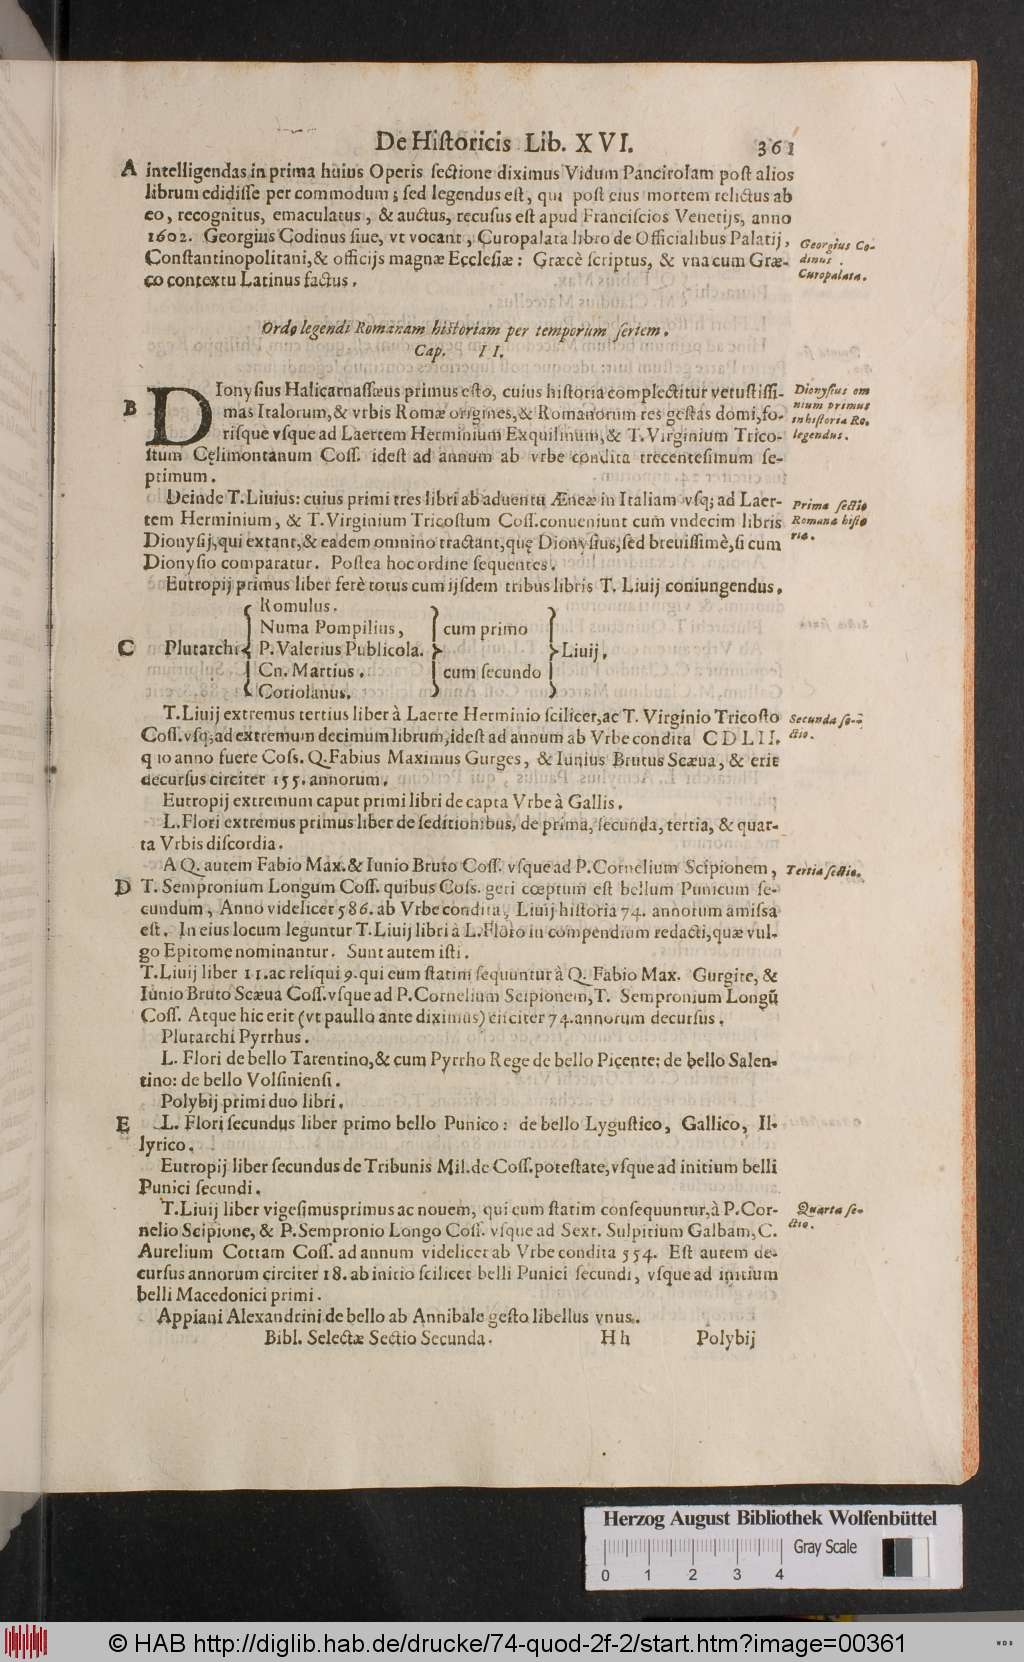 De Hiſtoricis Lib. XVI. 361
A intelligendas in prima huius Operis ſectione diximus Vidum Pancirolam poſt alios
librum edidiſſe per commodum; ſed legendus eſt, qui poſt eius mortem relictus ab
eo, recognitus, emaculatus, & auctus, recuſus eſt apud Franciſcios Venetijs, anno
1602. Georgius Codinus ſiue, vt vocant, Curopalata libro de Officialibus Palatij,
Conſtantinopolitani, & officijs magnæ Eccleſiæ: Græcè ſcriptus, & vna cum Græ-
co contextu Latinus factus.
Georgius Co-
dinus
Curopalata.
Ordo legendi Romanam hiſtoriam per temporum ſeriem.
Cap. II.
B DIonyſius Halicarnaſſæus primus eſto, cuius hiſtoria complectitur vetuſtiſſi-
mas Italorum, & vrbis Romæ origines, & Romanorum res geſtas domi, fo-
riſque vſque ad Laertem Herminium Exquilinum, & T. Virginium Trico-
ſtum Cęlimontanum Coſſ. ideſt ad annum ab vrbe condita trecenteſimum ſe-
ptimum.
Dionyſius om
nium primus
in hiſtoria Ro.
legendus.
Deinde T. Liuius: cuius primi tres libri ab aduentu Æneæ in Italiam vſq; ad Laer-
tem Herminium, & T. Virginium Tricoſtum Coſſ. conueniunt cum vndecim libris
Dionyſij, qui extant, & eadem omnino tractant, quę Dionyſius, ſed breuiſſimè, ſi cum
Dionyſio comparatur. Poſtea hoc ordine ſequentes.
Prima ſectio
Romana hiſto
ria.
Eutropij primus liber ferè totus cum ijſdem tribus libris T. Liuij coniungendus.
Romulus.
Numa Pompilius, cum primo
C Plutarchi P. Valerius Publicola. Liuij.
Cn. Martius. cum ſecundo
Coriolanus.
T. Liuij extremus tertius liber à Laerte Herminio ſcilicet, ac T. Virginio Tricoſto
Coſſ. vſq; ad extremum decimum librum, ideſt ad annum ab Vrbe condita CDLII.
q̄ 10 anno fuere Coſs. Q. Fabius Maximus Gurges, & Iunius Brutus Scæua, & erit
decurſus circiter 155. annorum.
Secunda ſe-
ctio.
Eutropij extremum caput primi libri de capta Vrbe à Gallis.
L. Flori extremus primus liber de ſeditionibus, de prima, ſecunda, tertia, & quar-
ta Vrbis diſcordia.
A Q. autem Fabio Max. & Iunio Bruto Coſſ. vſque ad P. Cornelium Scipionem,
D T. Sempronium Longum Coſſ. quibus Coſs. geri cœptum eſt bellum Punicum ſe-
cundum, Anno videlicet 586. ab Vrbe condita, Liuij hiſtoria 74. annorum amiſſa
eſt. In eius locum leguntur T. Liuij libri à L. Floro in compendium redacti, quæ vul-
go Epitome nominantur. Sunt autem iſti.
Tertia ſectio.
T. Liuij liber 11. ac reliqui 9. qui eum ſtatim ſequuntur à Q. Fabio Max. Gurgite, &
Iunio Bruto Scæua Coſſ. vſque ad P. Cornelium Scipionem, T. Sempronium Longũ
Coſſ. Atque hic erit (vt paullo ante diximus) circiter 74. annorum decurſus.
Plutarchi Pyrrhus.
L. Flori de bello Tarentino, & cum Pyrrho Rege de bello Picente: de bello Salen-
tino: de bello Volſinienſi.
Polybij primi duo libri.
E L. Flori ſecundus liber primo bello Punico: de bello Lyguſtico, Gallico, Il-
lyrico.
Eutropij liber ſecundus de Tribunis Mil. de Coſſ. poteſtate, vſque ad initium belli
Punici ſecundi.
T. Liuij liber vigeſimusprimus ac nouem, qui eum ſtatim conſequuntur, à P. Cor-
nelio Scipione, & P. Sempronio Longo Coſſ. vſque ad Sext. Sulpitium Galbam, C.
Aurelium Cottam Coſſ. ad annum videlicet ab Vrbe condita 554. Eſt autem de-
curſus annorum circiter 18. ab initio ſcilicet belli Punici ſecundi, vſque ad initium
belli Macedonici primi.
Quarta ſe-
ctio.
Appiani Alexandrini de bello ab Annibale geſto libellus vnus.
Bibl. Selectæ Sectio Secunda. Hh Polybij
Herzog August Bibliothek Wolfenbüttel
Gray Scale
0 1 2 3 4
© HAB http://diglib.hab.de/drucke/74-quod-2f-2/start.htm?image=00361